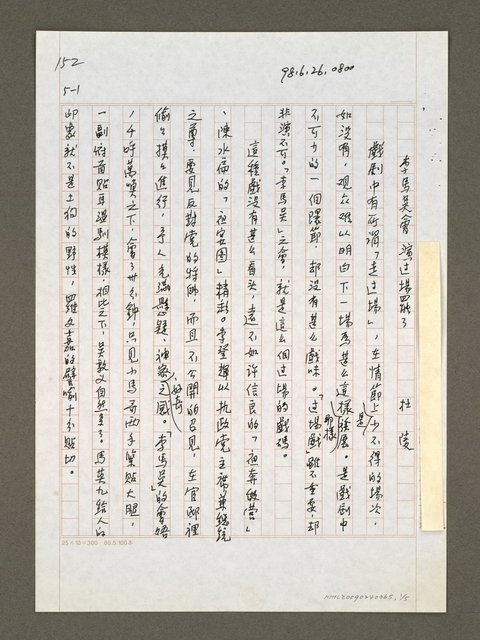 152
5-1
98.6.26.0800
李馬吳會 演過場罷了
杜陵
戲劇中有所謂「走過場」，在情節上是少不得的場次，
如沒有，观众难以明白下一場為甚么這樣發展。是戲劇中
不可少的一個環節，却沒有甚么戲味。「過場戲」雖不重要，却
那樣
非演不可。「李馬吳」之會，就是這么個过場的戲碼。
這種戲沒有甚么看头，遠不如许信良的「夜奔敵营」
、陳水扁的「夜宴圖」精彩。李登輝以执政党主席兼總統
之尊，要見反對党的特師，而且不公開的召見，在官邸裡
偷々摸々進行，予人充滿懸疑、神秘之感。「李馬吳」的會晤
、好奇
，千呼萬喚之下，會了卅分鐘，只見小馬哥两手緊贴大腿，
一副俯首贴耳溫馴模樣，相比之下，吳敦义自然多了。馬英九给人的
印象就不是土狗的野性，羅文嘉的譬喻十分贴切。
25×10=300 86.5.100本
NMCL20090240265, 1/5